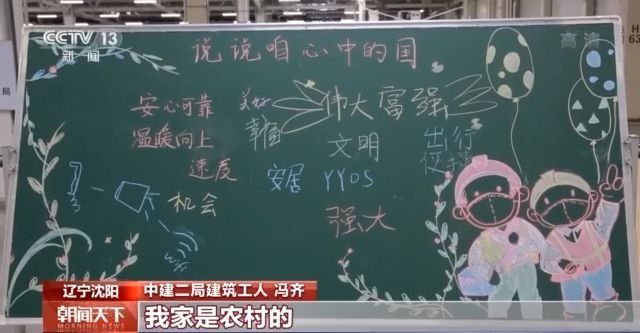 CCTV 13
新闻
高清
说说咱心中的国
安心可靠
美好
伟大富强
温暖向上
幸福
文明
出行
便捷
速度
安居
YYDS
机会
强大
局
辽宁沈阳
中建二局建筑工人 冯齐
朝闻天下
MORNING NEWS
我家是农村的